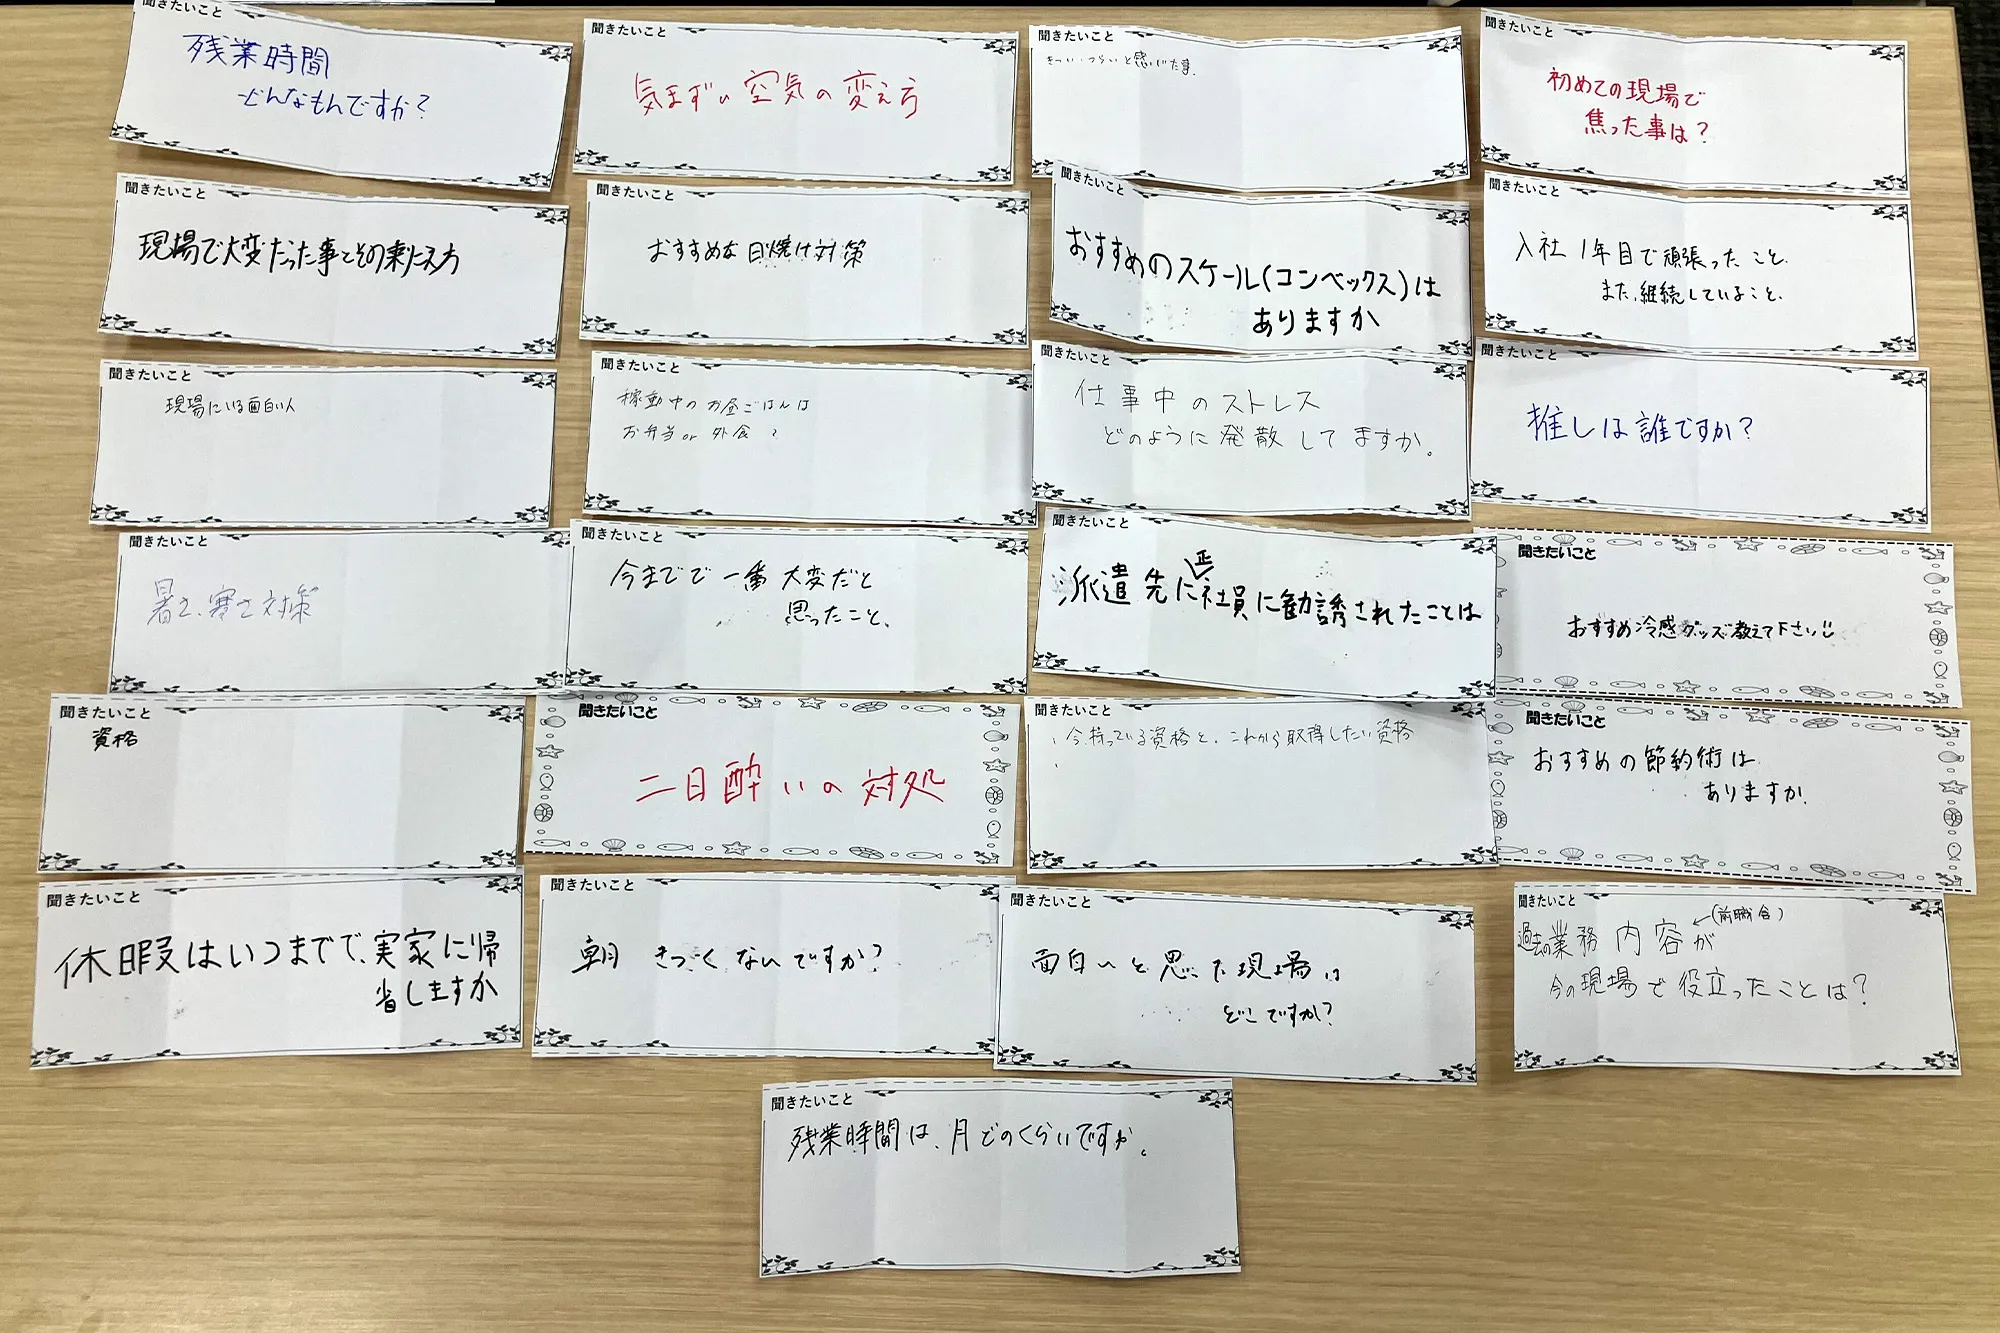 聞きたいこと
残業時間
どんなもんですか?
聞きたいこと
気まずい空気の変え方
聞きたいこと
きつい・つらいと感じた事.
聞きたいこと
初めての現場で
焦った事は?
聞きたいこと
現場で大変だった事とその乗りこえ方
聞きたいこと
おすすめな日焼け対策
聞きたいこと
おすすめのスケール(コンベックス)は
ありますか
聞きたいこと
入社1年目で頑張ったこと、
また、継続していること、
聞きたいこと
現場にいる面白い人
聞きたいこと
稼動中のお昼ごはんは
お弁当or外食?
聞きたいこと
仕事中のストレス
どのように発散してますか。
聞きたいこと
推しは誰ですか?
聞きたいこと
暑さ、寒さ対策
聞きたいこと
今までで一番大変だと
思ったこと、
聞きたいこと
派遣先に正社員に勧誘されたことは
聞きたいこと
おすすめ冷感グッズ教えて下さい!!
聞きたいこと
資格
聞きたいこと
二日酔いの対処
聞きたいこと
、今持っている資格と、これから取得したい資格
、
聞きたいこと
おすすめの節約術は
ありますか、
聞きたいこと
休暇はいつまでで、実家に帰
省しますか
聞きたいこと
朝 きつくないですか?
聞きたいこと
面白いと思った現場は
どこですか?
聞きたいこと
過去の業務内容が ←(前職含)
今の現場で役立ったことは?
聞きたいこと
残業時間は、月どのくらいですか。